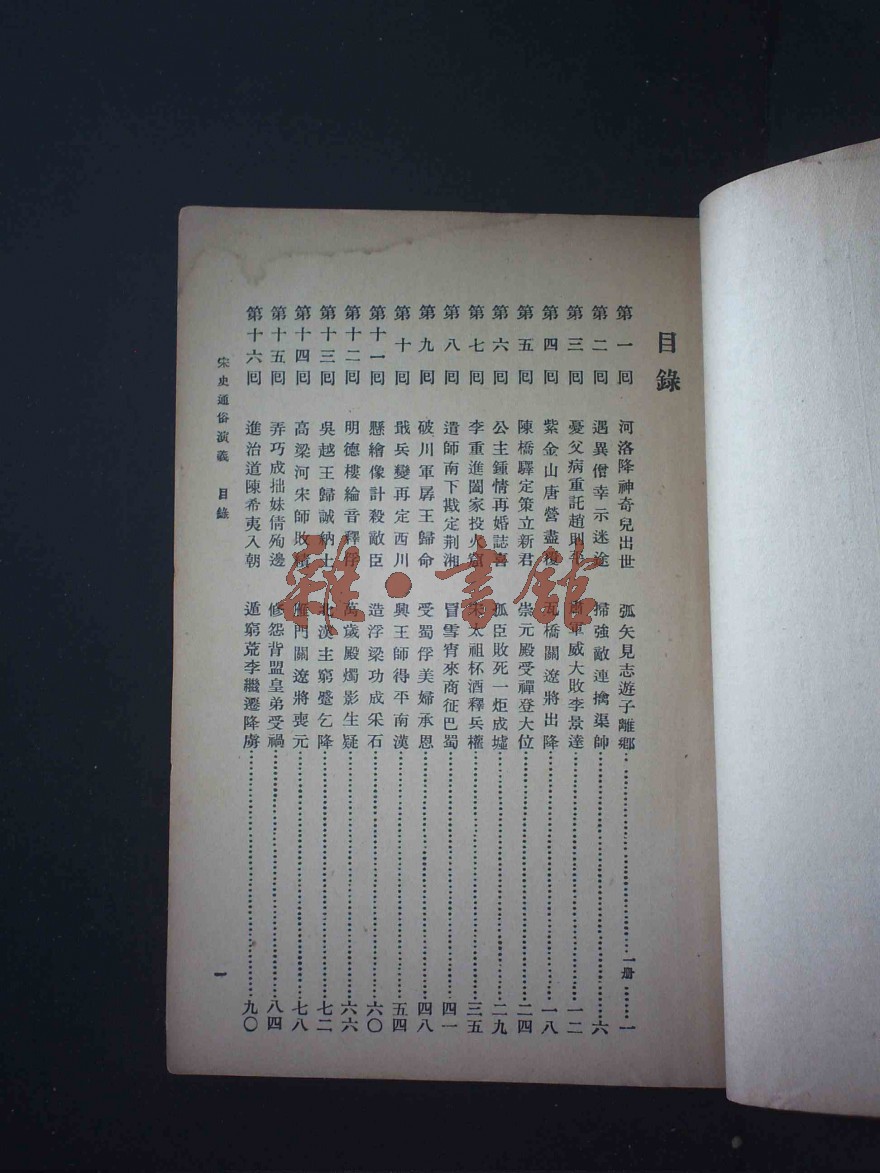 目錄
第一囘 河洛降神奇兒出世 弧矢見志遊子離鄉 一册 一
第二囘 遇異僧幸示迷途 掃強敵連擒渠帥 六
第三囘 憂父病重託趙則平 肅軍威大敗李景達 一二
第四囘 紫金山唐營盡覆 瓦橋關遼將出降 一八
第五囘 陳橋驛定策立新君 崇元殿受禪登大位 二四
第六囘 公主鍾情再婚誌喜 孤臣敗死一炬成墟 二九
第七囘 李重進闔家投火窟 宋太祖杯酒釋兵權 三五
第八囘 遣師南下戡定荆湘 冒雪宵來商征巴蜀 四一
第九囘 破川軍孱王歸命 受蜀俘美婦承恩 四八
第十囘 戢兵變再定西川 興王師得平南漢 五四
第十一囘 懸繪像計殺敵臣 造浮梁功成采石 六〇
第十二囘 明德樓綸音釋俘 萬歲殿燭影生疑 六六
第十三囘 吳越王歸誠納土 北漢主窮蹙乞降 七二
第十四囘 高梁河宋師敗績 雁門關遼將喪元 七八
第十五囘 弄巧成拙妹倩殉邊 修怨背盟皇弟受禍 八四
第十六囘 進治道陳希夷入朝 遁窮荒李繼遷降虜 九〇
宋史通俗演義 目錄 一
雜·書館